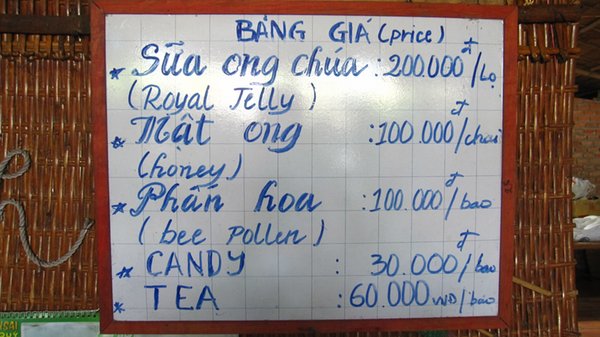 BẢNG GIÁ (price)
* Sữa ong chúa : 200.000đ/Lọ
(Royal Jelly)
* Mật ong : 100.000đ/chai
(honey)
* Phấn hoa : 100.000đ/bao
(bee pollen)
* CANDY : 30.000đ/bao
* TEA : 60.000VND/bao